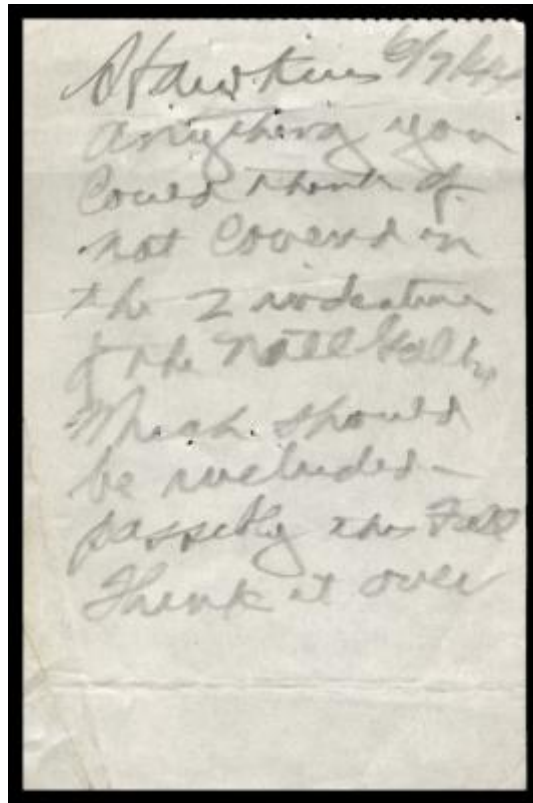 Hawkins 6/7/44
anything you
could think of
not covered in
the 2 
of the Natl Gall.,
which should
be included –
possibly this Fall
Think it over